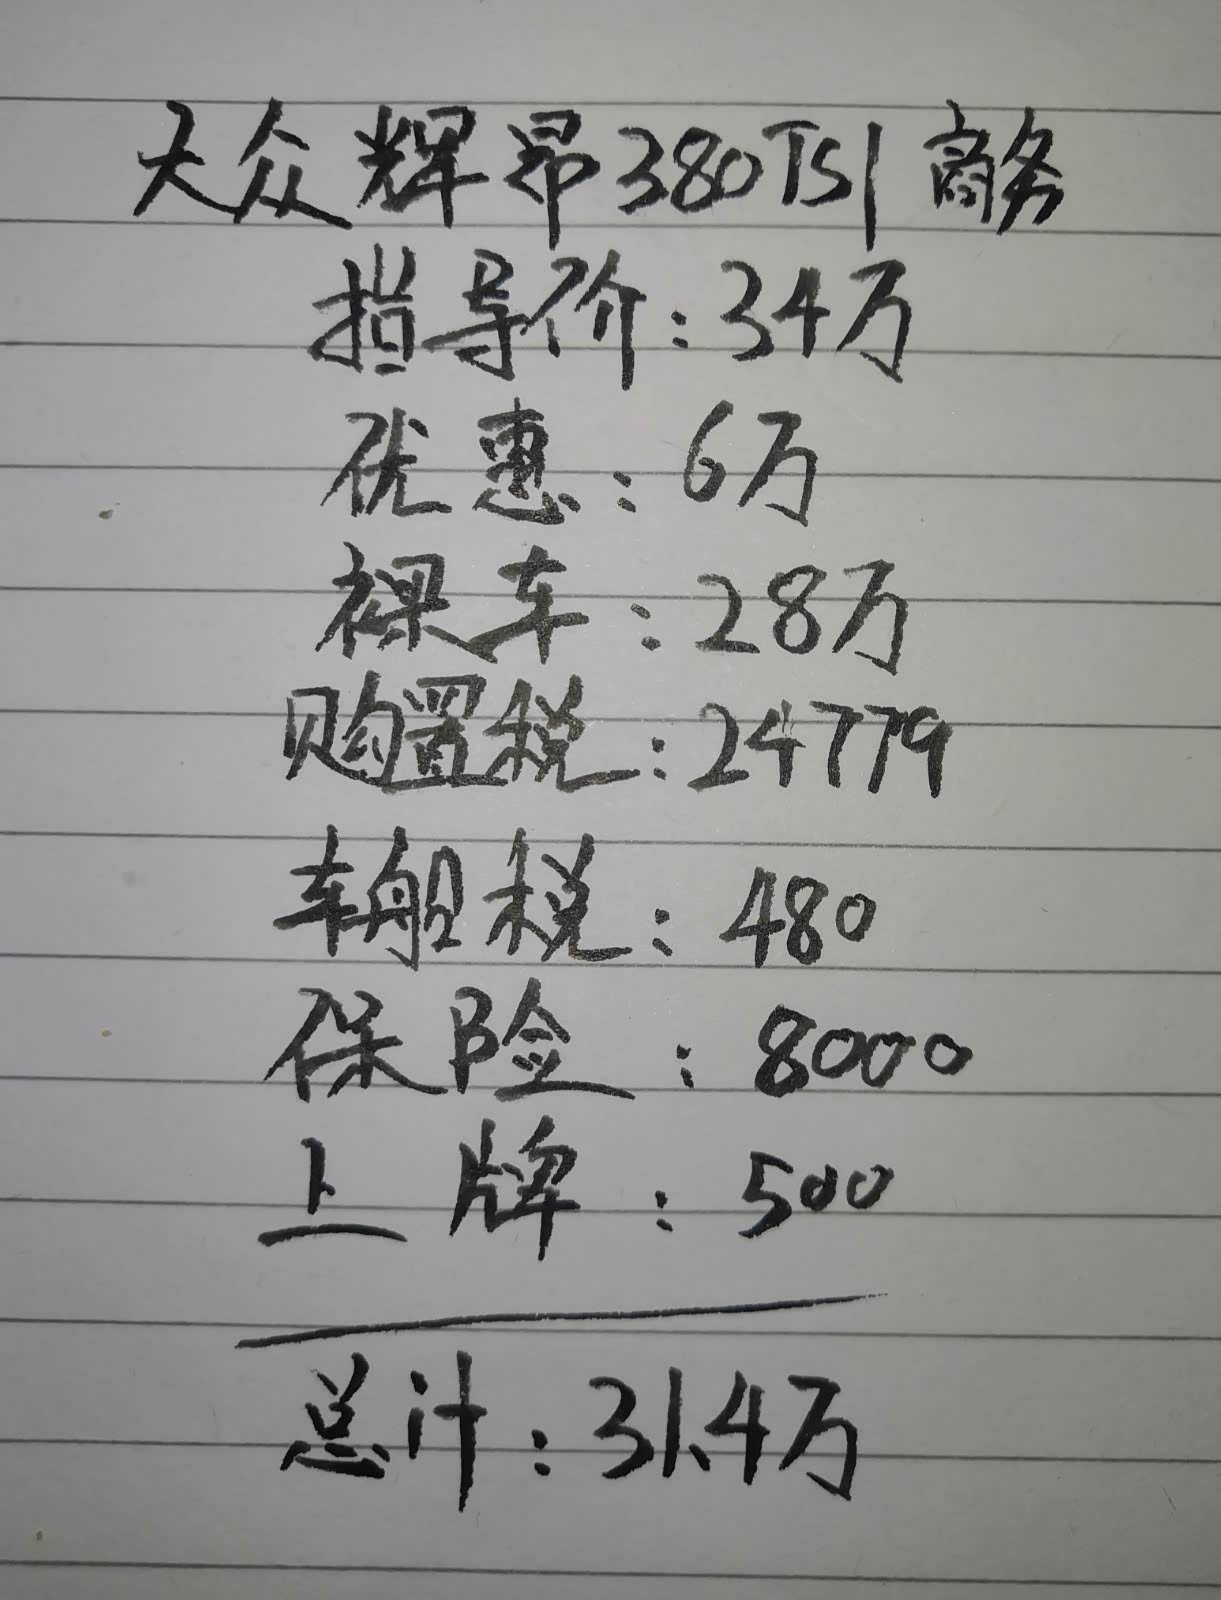 大众辉昂380TSI商务
指导价:34万
优惠:6万
裸车:28万
购置税:24779
车船税:480
保险:8000
上牌:500
总计:31.4万